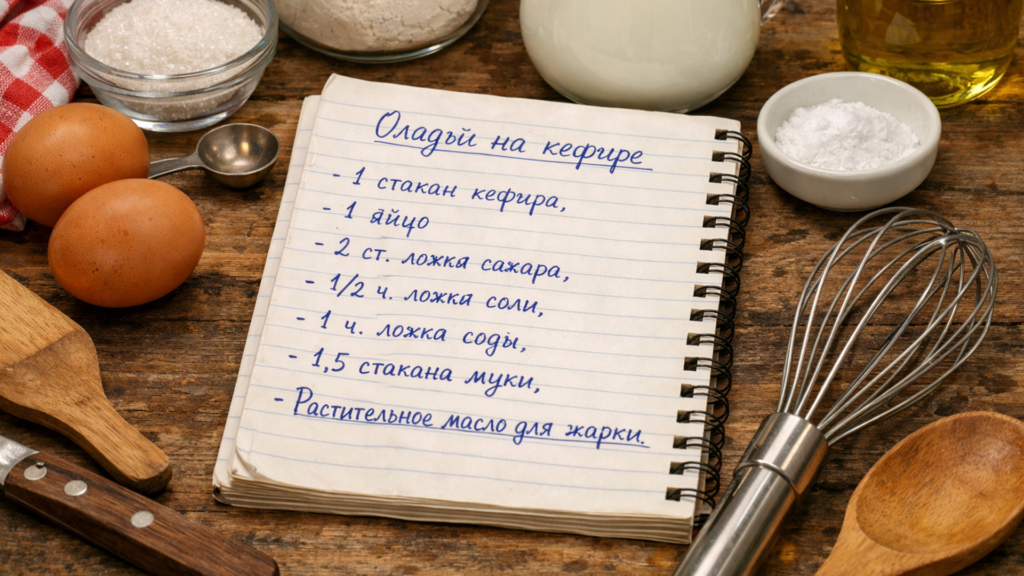 Оладьи на кефире
- 1 стакан кефира,
- 1 яйцо
- 2 ст. ложка сахара,
- 1/2 ч. ложка соли,
- 1 ч. ложка соды,
- 1,5 стакана муки,
- Растительное масло для жарки.